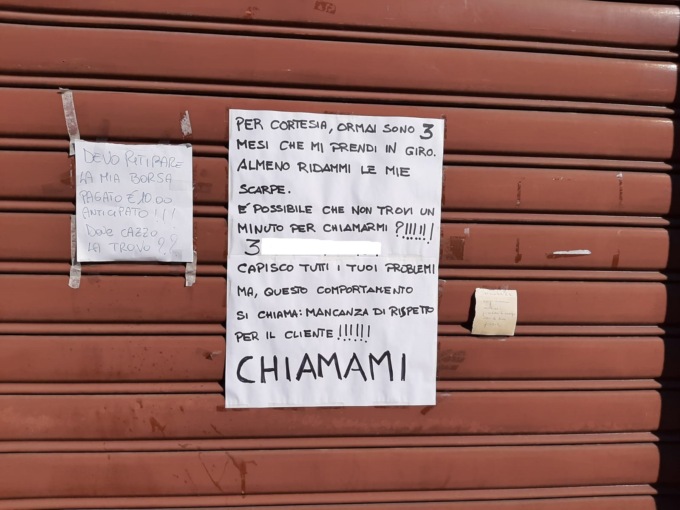 DEVO RITIRARE
LA MIA BORSA
PAGATO € 10.00
ANTICIPATO !!!
DOVE CAZZO
LA TROVO ??
PER CORTESIA, ORMAI SONO 3
MESI CHE MI PRENDI IN GIRO.
ALMENO RIDAMMI LE MIE
SCARPE.
É POSSIBILE CHE NON TROVI UN
MINUTO PER CHIAMARMI ?!!!!!!
3
CAPISCO TUTTI I TUOI PROBLEMI
MA, QUESTO COMPORTAMENTO
SI CHIAMA: MANCANZA DI RISPETTO
PER IL CLIENTE !!!!!!
CHIAMAMI